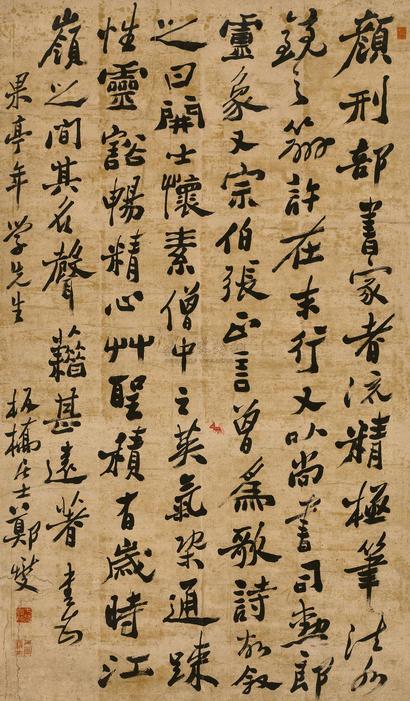 顏刑部書家者流精極筆法水
鏡之辯許在末行又以尚書司勳郎
盧象又宗伯張正言曾為歌詩故敘
之曰開士懷素僧中之英氣槩通踈
性靈豁暢精心艸聖積有歲時江
嶺之間其名聲藉甚遠著
果亭年學先生
板橋居士鄭燮